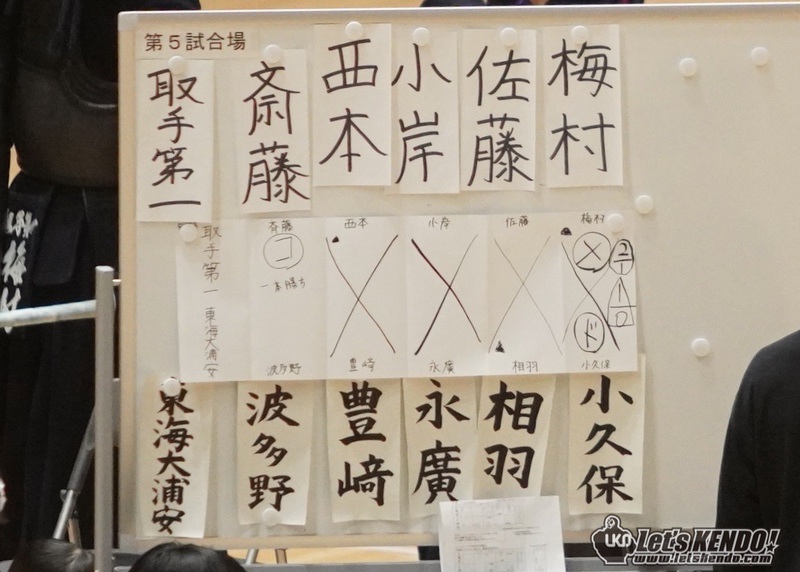 第5試合場
取手第一
斎藤
西本
小岸
佐藤
梅村
取手第一
斉藤
西本
小岸
佐藤
梅村
コ
一本勝ち
メ
ド
2
1
1
0
東海大浦安
波多野
豊崎
永廣
相羽
小久保
東海大浦安
波多野
豊﨑
永廣
相羽
小久保
梅村
LKD Let's KENDO!
www.letskendo.com